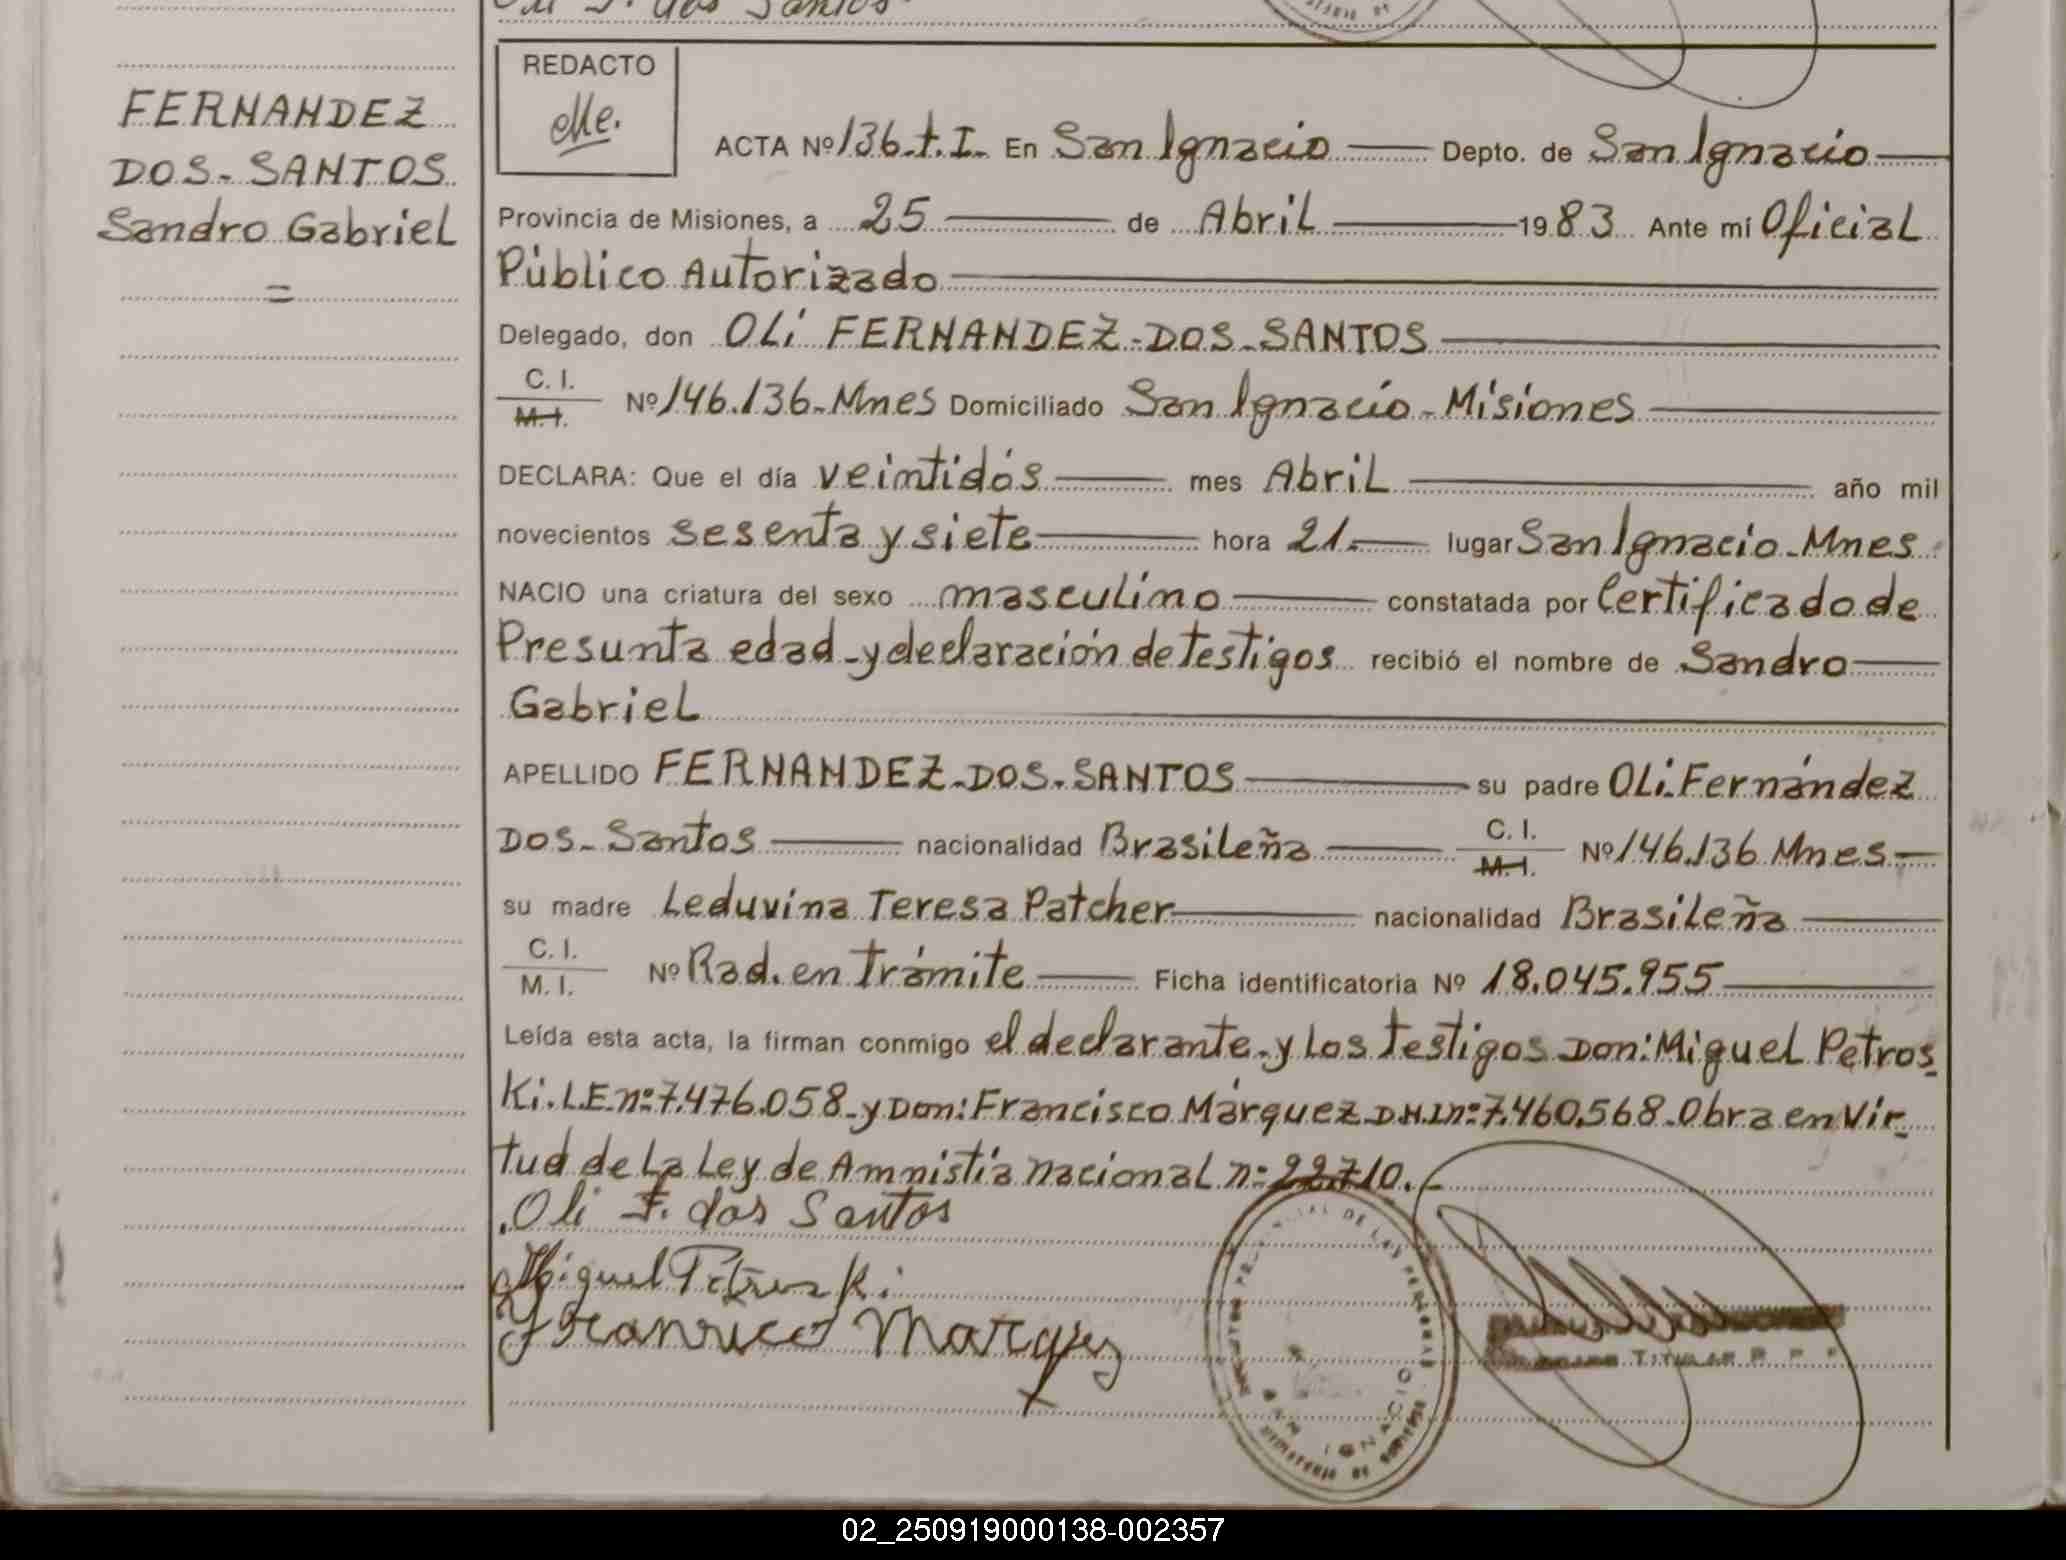 Oli F. dos Santos
FERNANDEZ
DOS-SANTOS
Sandro Gabriel
=
REDACTO
ACTA Nº 136.t.I. En San Ignacio Depto. de San Ignacio
Provincia de Misiones, a 25 de Abril 1983 Ante mí Oficial
Público Autorizado
Delegado, don OLi FERNANDEZ-DOS-SANTOS
C. I.
M. I. Nº 146.136-Mnes Domiciliado San Ignacio-Misiones
DECLARA: Que el día veintidós mes Abril año mil
novecientos sesenta y siete hora 21. lugar San Ignacio-Mnes
NACIO una criatura del sexo masculino constatada por Certificado de
Presunta edad-y declaración de testigos recibió el nombre de Sandro
Gabriel
APELLIDO FERNANDEZ-DOS-SANTOS su padre OLi-Fernández
Dos-Santos nacionalidad Brasileña C. I.
M. I. Nº 146.136 Mnes-
su madre Leduvina Teresa Patcher nacionalidad Brasileña
C. I.
M. I. Nº Rad. en Trámite Ficha identificatoria Nº 18.045.955
Leída esta acta, la firman conmigo el declarante-y los testigos Don: Miguel Petros_
Ki. L.E nº: 7.476.058-y Don: Francisco Márquez D.N.I nº: 7.460.568-Obra en Vir_
tud de La Ley de Amnistía nacional n: 22.710.-
Oli F. dos Santos
Miguel Petruski
Francisco Marques
SAN IGNACIO
TITULAR R. P. P.
02_250919000138-002357